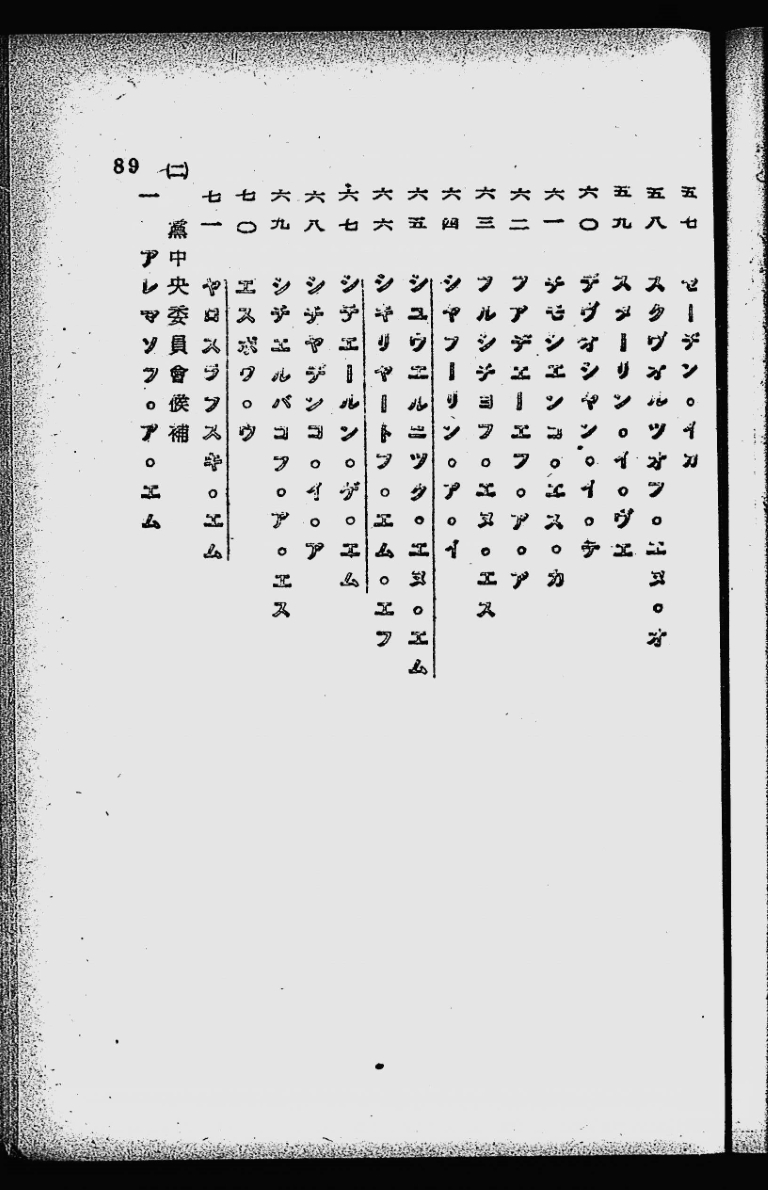 五七 セーデン。イカ
五八 スクヴオルツオフ。エヌ。オ
五九 スターリン。イ。ヴエ
六〇 デヴオシヤン。イ。テ
六一 チモシエンコ。エス。カ
六二 フアデエーエフ。ア。ア
六三 フルシチヨフ。エヌ。エス
六四 シヤフーリン。ア。イ
六五 シユウエルニツク。エヌ。エム
六六 シキリヤートフ。エム。エフ
六七 シテエールン。ゲ。エム
六八 シチヤデンコ。イ。ア
六九 シチエルバコフ。ア。エス
七〇 エスポワ。ウ
七一 ヤロスラフスキ。エム
(二) 黨中央委員會候補
一 アレマソフ。ア。エム
89